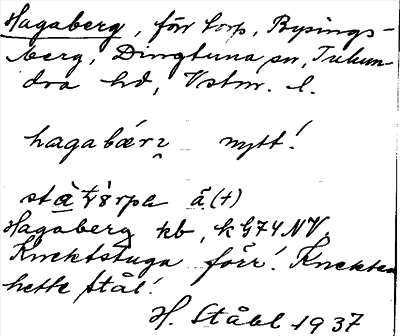 Hagaberg, förr torp, Rysings-
berg, Dingtuna sn, Tuhun-
dra hd, Vstm. l.
hagabærɩ nytt!
Hagaberg kb, k G74 NV.
Knektstuga förr! Knekten
hette Stål!
H. Ståhl 1937